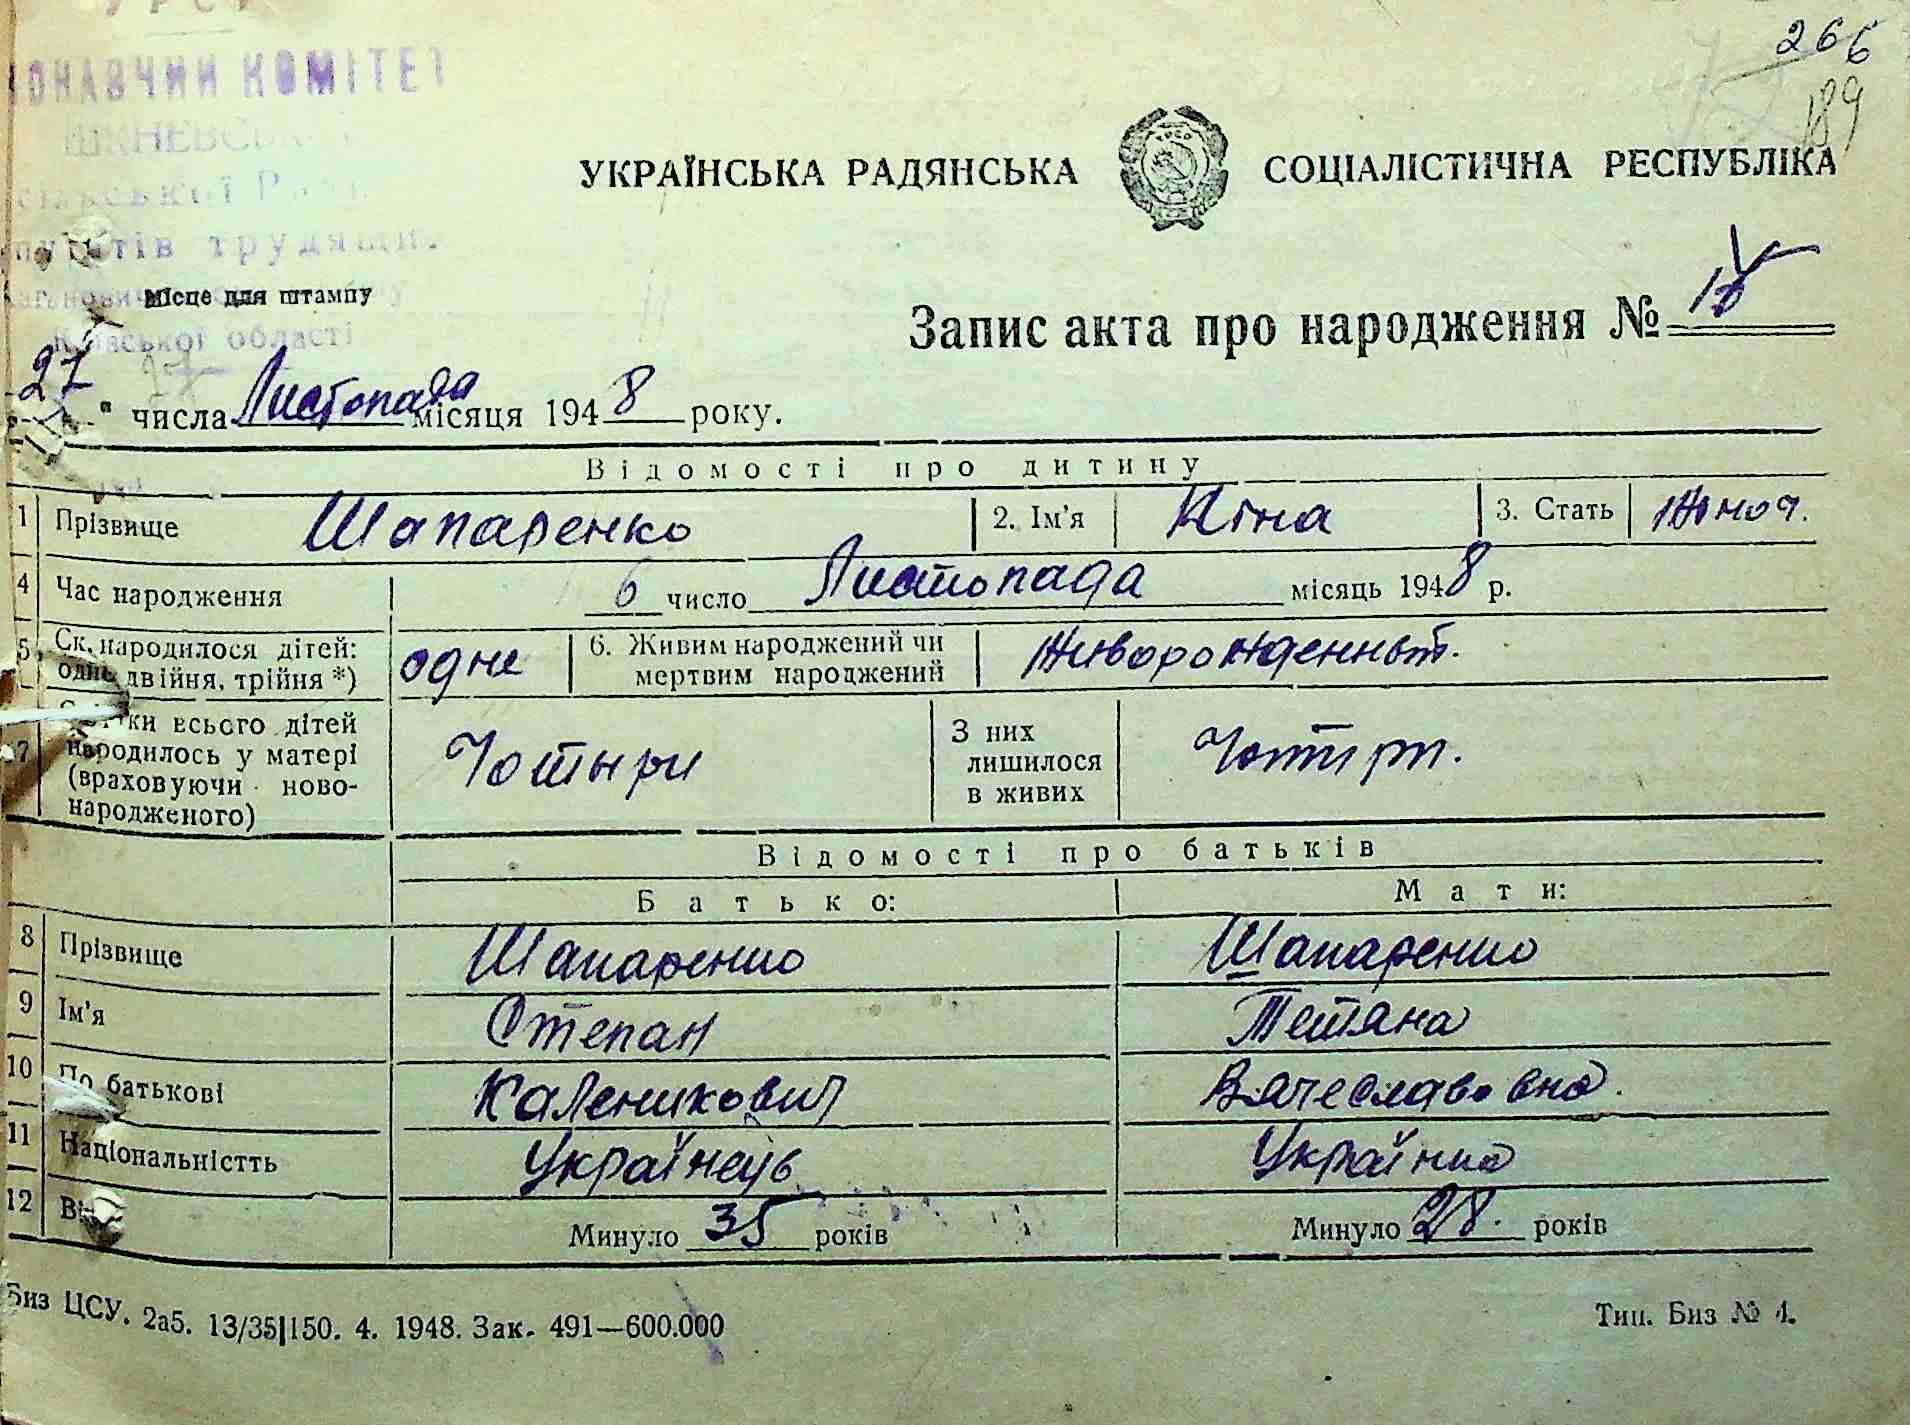 УРСР
ОНАВЧИЙ КОМІТЕТ
266
189
УКРАЇНСЬКА РАДЯНСЬКА СОЦІАЛІСТИЧНА РЕСПУБЛІКА
трудящих
Місце для штампу
Київської області
Запис акта про народження №
27 " числа Листопада місяця 1948 року.
Відомості про дитину
1 Прізвище Шапаренко 2. Ім'я Ніна 3. Стать жіноч.
4 Час народження 6 число Листопада місяць 1948 р.
5 Ск. народилося дітей: одне 6. Живим народжений чи Живорожденный.
одно, двійня, трійня *) мертвим народжений
Скільки всього дітей З них
7 народилось у матері Чотыри лишилося Чотири.
(враховуючи ново- в живих
народженого)
Відомості про батьків
Батько: Мати:
8 Прізвище Шапаренко Шапаренко
9 Ім'я Степан Тетяна
10 По батькові Каленикович Вячеславовна.
11 Національністть Українець Українка
12 Вік Минуло 35 років Минуло 28. років
Биз ЦСУ. 2а5. 13/35|150. 4. 1948. Зак. 491—600.000
Тип. Биз № 4.